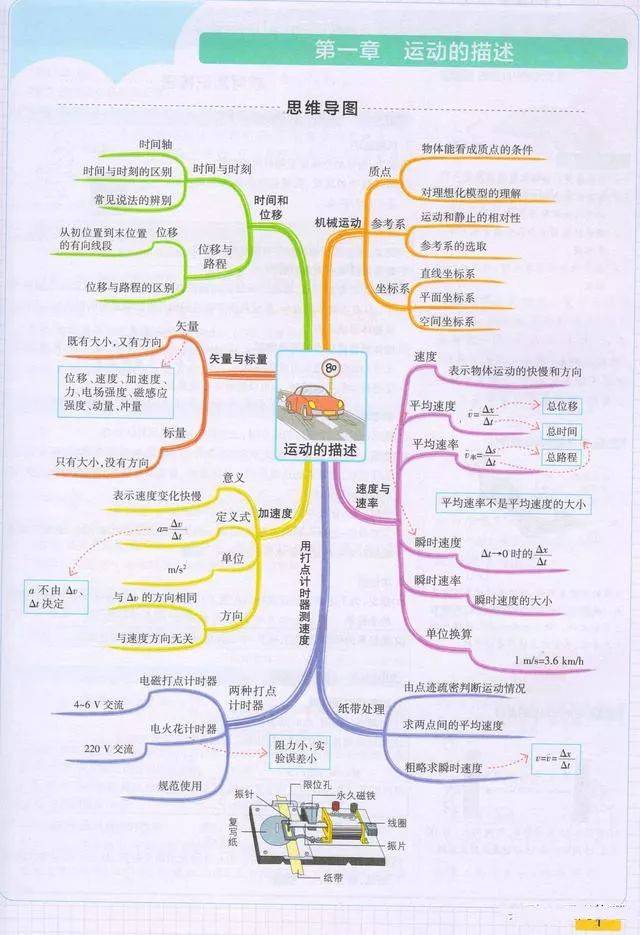 第一章 运动的描述
思维导图
时间轴
时间与时刻的区别
常见说法的辨别
时间与时刻
时间和
位移
从初位置到末位置
的有向线段
位移
位移与路程的区别
位移与
路程
机械运动
质点
物体能看成质点的条件
对理想化模型的理解
参考系
运动和静止的相对性
参考系的选取
坐标系
直线坐标系
平面坐标系
空间坐标系
矢量
既有大小,又有方向
矢量与标量
位移、速度、加速度、
力、电场强度、磁感应
强度、动量、冲量
标量
只有大小,没有方向
80
运动的描述
速度与
速率
速度
表示物体运动的快慢和方向
平均速度
v̄=Δx/Δt
总位移
总时间
平均速率
v̄率=Δs/Δt
总路程
平均速率不是平均速度的大小
瞬时速度
Δt→0 时的Δx/Δt
瞬时速率
瞬时速度的大小
单位换算
1 m/s=3.6 km/h
加速度
意义
表示速度变化快慢
定义式
a=Δv/Δt
a 不由 Δv、
Δt 决定
单位
m/s²
与 Δv 的方向相同
方向
与速度方向无关
用打点计时器测速度
两种打点
计时器
电磁打点计时器
4~6 V 交流
电火花计时器
220 V 交流
阻力小,实
验误差小
规范使用
纸带处理
由点迹疏密判断运动情况
求两点间的平均速度
粗略求瞬时速度
v=v̄=Δx/Δt
限位孔
振针
永久磁铁
复写纸
线圈
振片
纸带
1